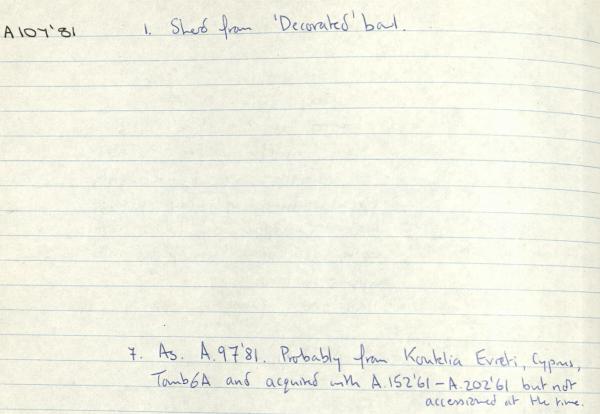 A107'81 1. Sherd from 'Decorated' bowl.
7. As. A.97'81. Probably from Kouklia Evreti, Cyprus,
Tomb6A and acquired with A.152'61 - A.202'61 but not
accessioned at the time.